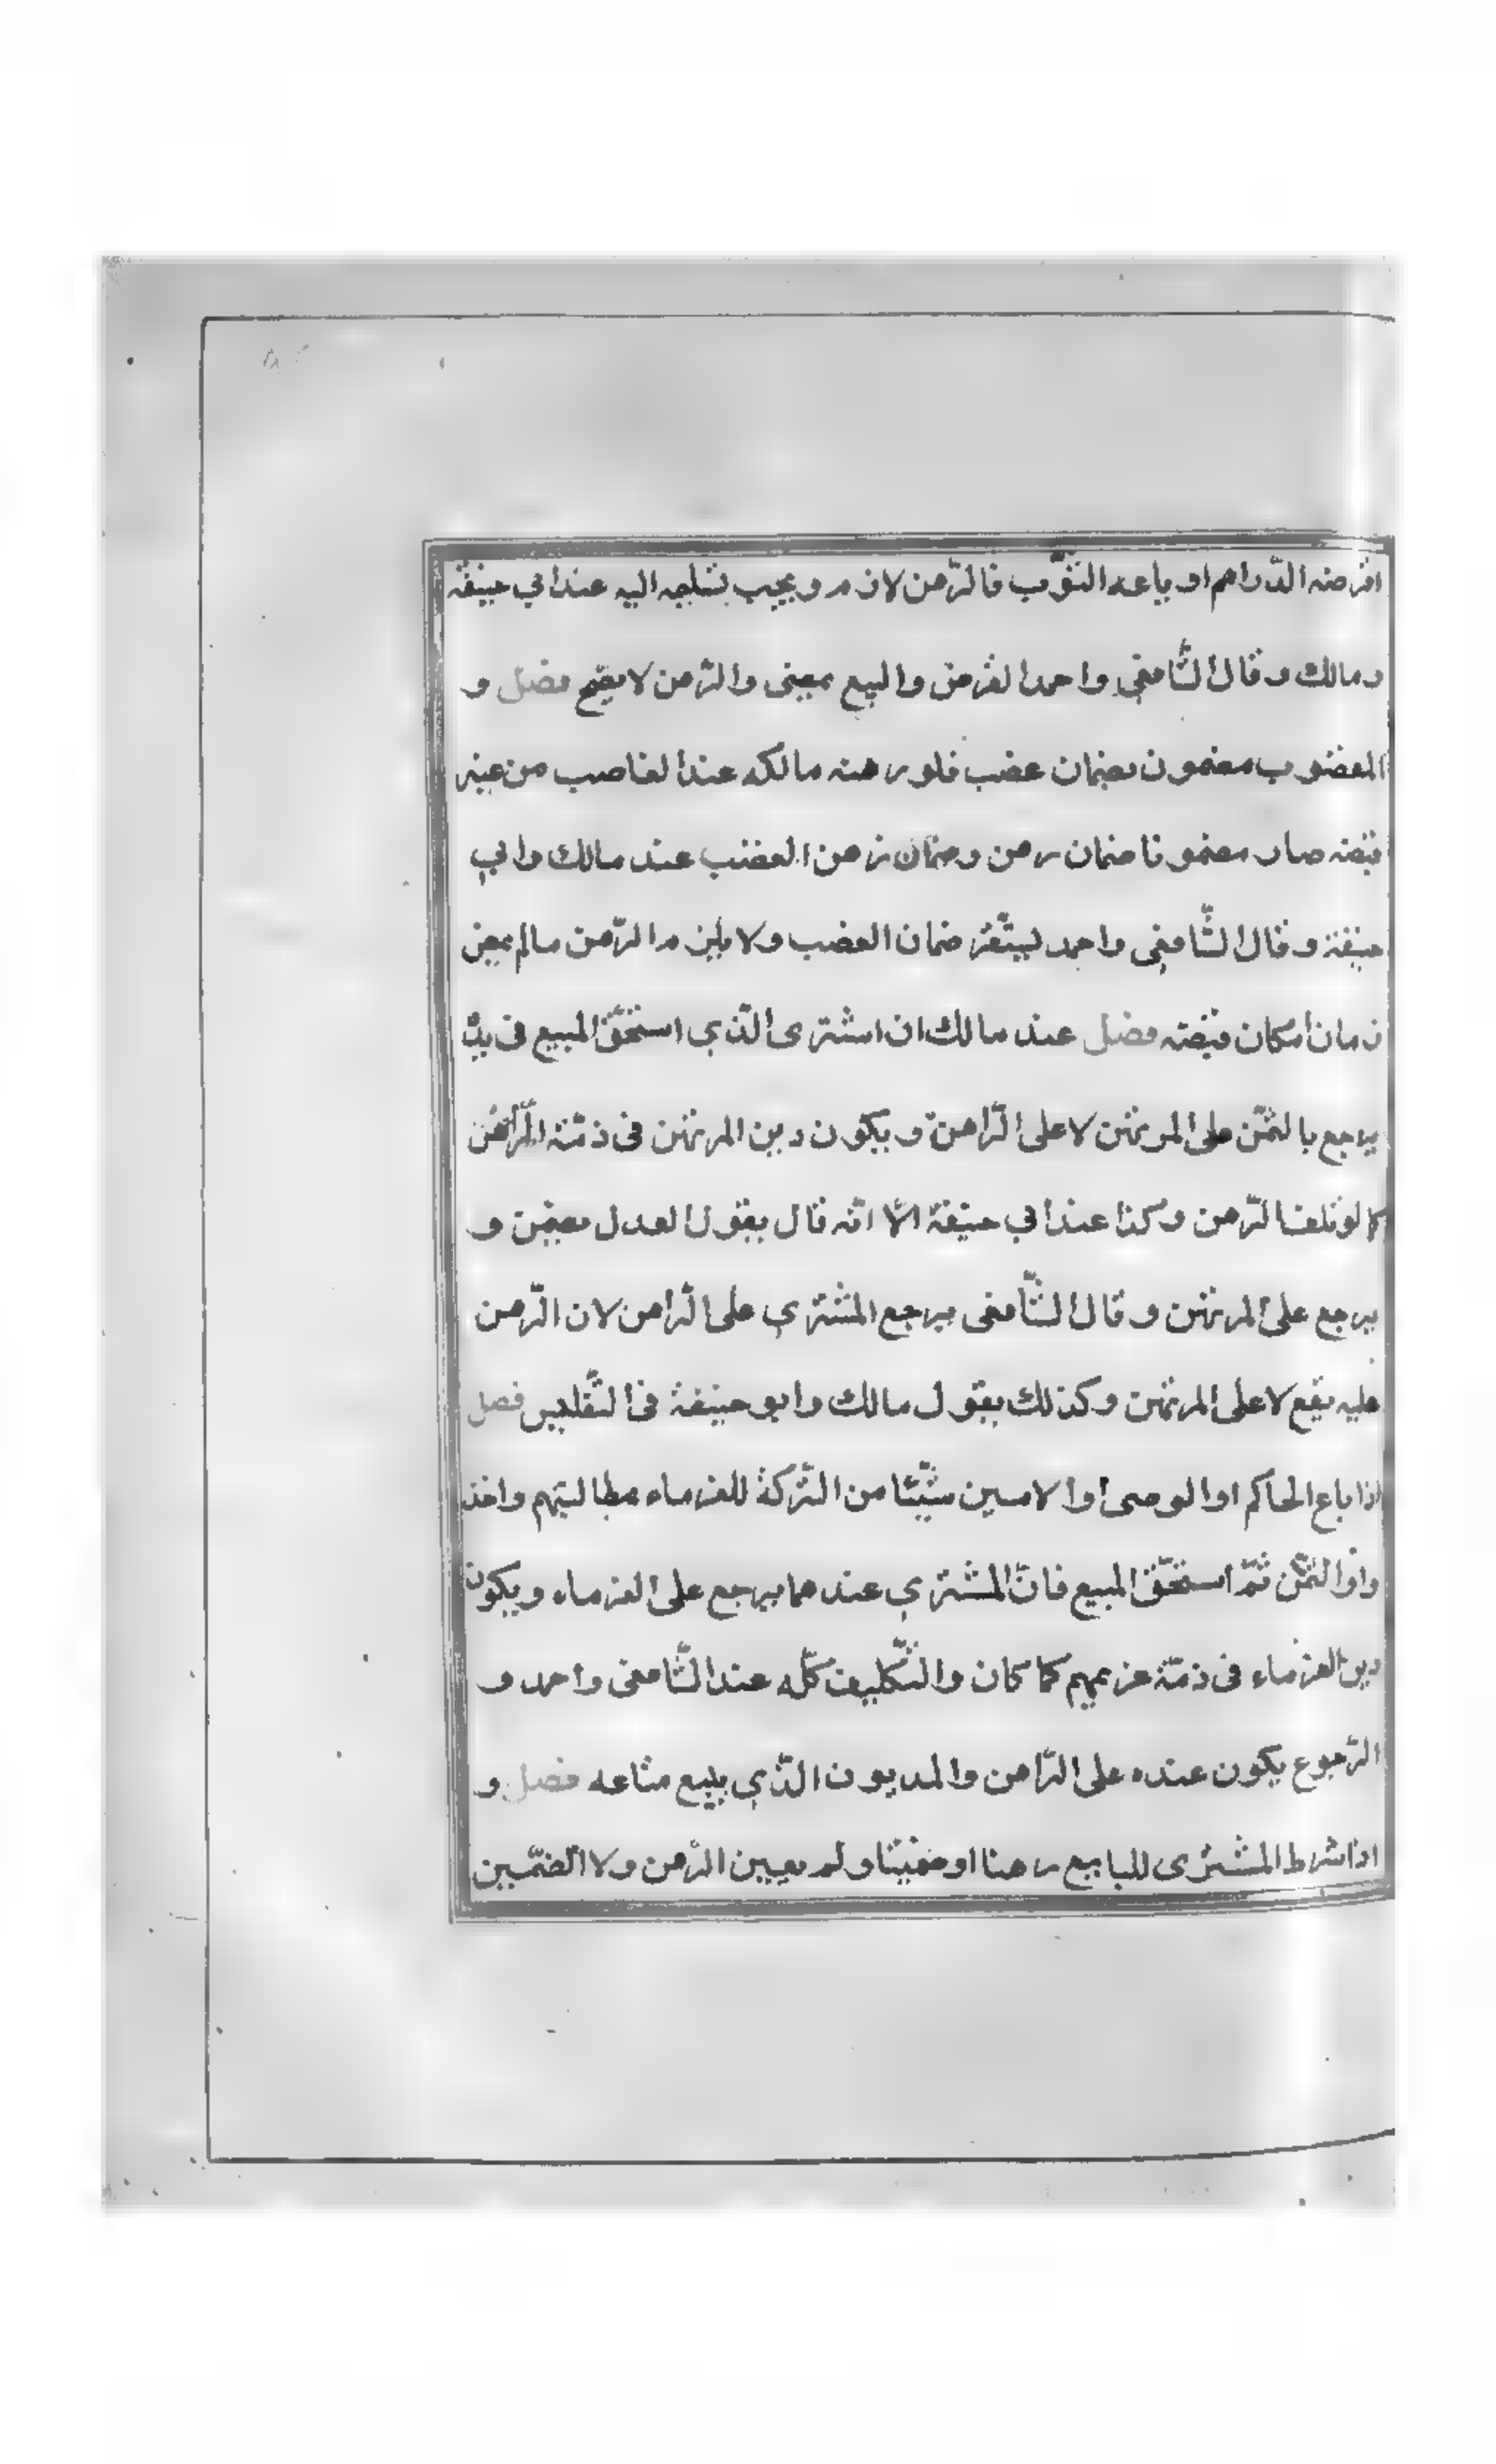 اقرضه الدّراهم او باعه الثّوب فالرّهن لازم ويجب تسليمه اليه عند ابي حنيفة
ومالك وقال الشّافعي واحمد القرض والبيع يمضى والرّهن لا يصح فصل و
المغضوب مضمون بضمان غضب فلو رهنه مالكه عند الغاصب من غير
قبضه صار مضمونا ضمان رهن وضمان زهن الغضب عند مالك وابي
حنيفة وقال الشّافعي واحمد يستّقر ضمان الغضب ولا يلزم الرّهن مالم يمض
زمان امكان قبضه فصل عند مالك ان اشترى الّذي استحقّ المبيع في يدّ
يرجع بالثمّن على المرتهن لا على الرّاهن ويكون دين المرتهن فى ذمّة الرّاهن
كما لو تلف الرّهن وكذا عند ابي حنيفة الّا انّه قال يقول العدل يضمن و
يرجع على المرتهن وقال الشّافعى يرجع المشتري على الرّاهن لان الرّهن
عليه يقع لا على المرتهن وكذلك يقول مالك وابو حنيفة فى التّفليس فصل
اذا باع الحاكم او الوصى او الامين شيّئا من التّركة للغرماء مطالبتهم واخذ
وا الثمّن ثمّ استحّق المبيع فانّ المشتري عندهما يرجع على الغرماء ويكون
دين الغرماء فى ذمّة غريمهم كما كان والتّكليف كلّه عند الشّافعى واحمد و
الرّجوع يكون عنده على الرّاهن والمديون الّذي يبيع متاعه فصل و
اذا شرط المشترى للبايع رهنا او ضمينا ولم يعيين الرّهن ولا الضمّين